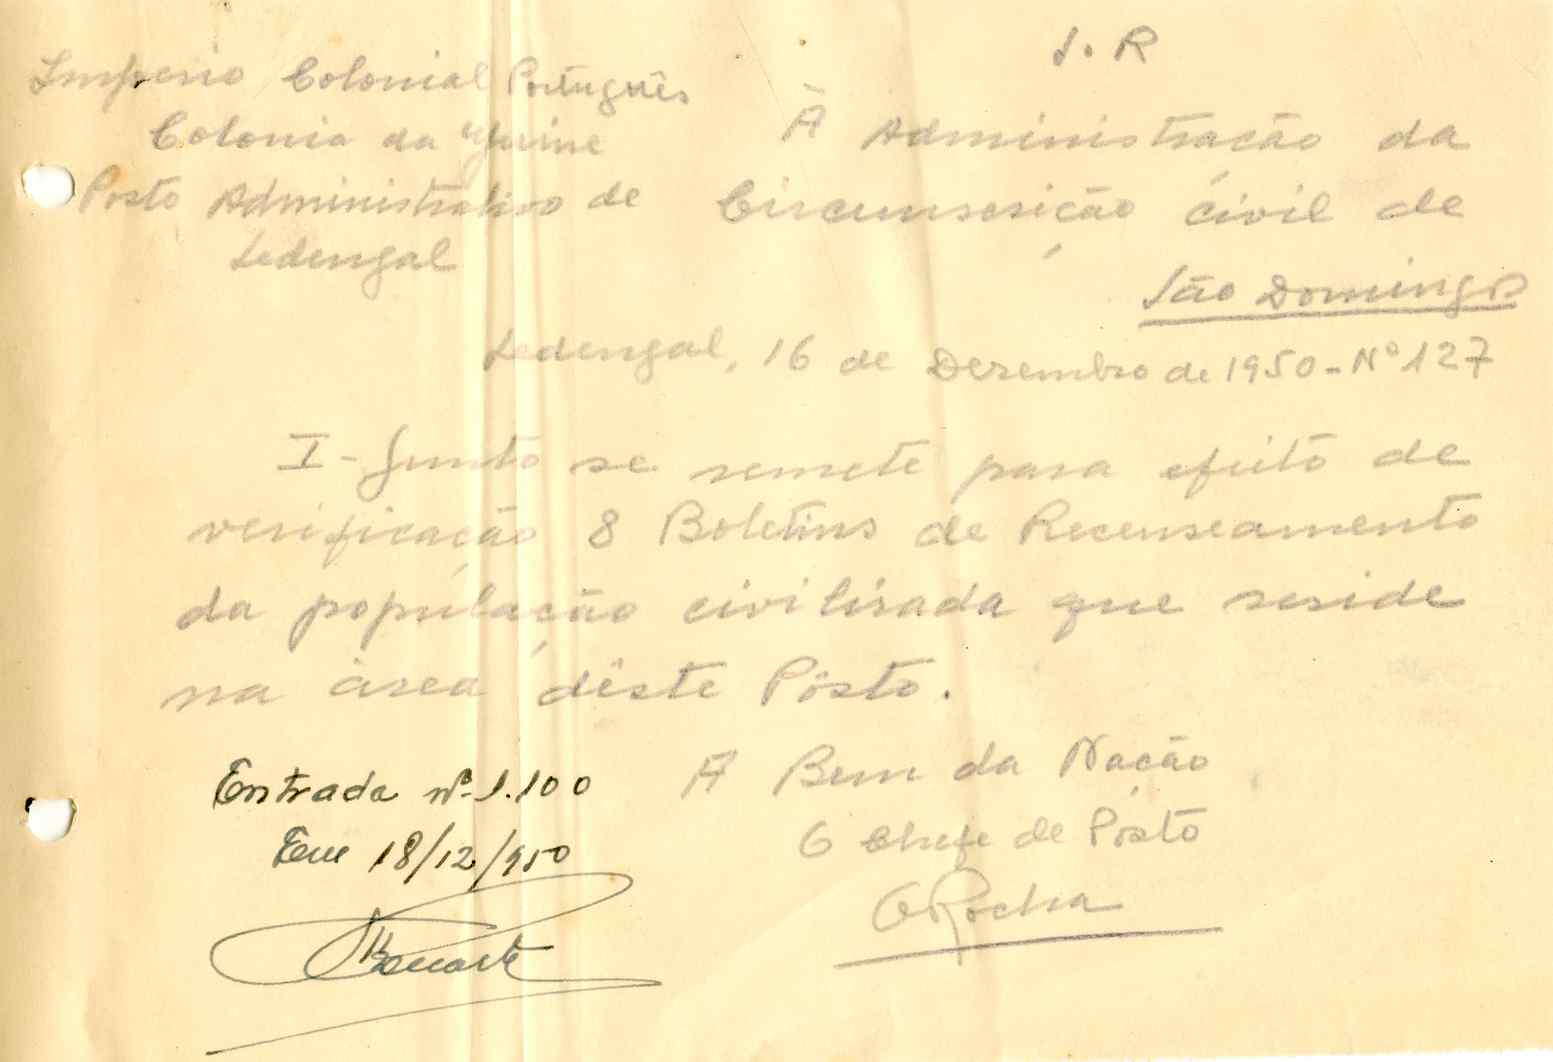 S. R
Imperio Colonial Português
Colonia da Guine
Posto Administrativo de
Sedengal
À Administração da
Circunscrição civil de
São Domingos
Sedengal, 16 de Dezembro de 1950 - Nº 127
I - Junto se remete para efeito de
verificação 8 Boletins de Recenseamento
da população civilizada que reside
na àrea dêste Pôsto.
A Bem da Nação
O Chefe de Pôsto
ORocha
Entrada nº 1.100
Em 18/12/950